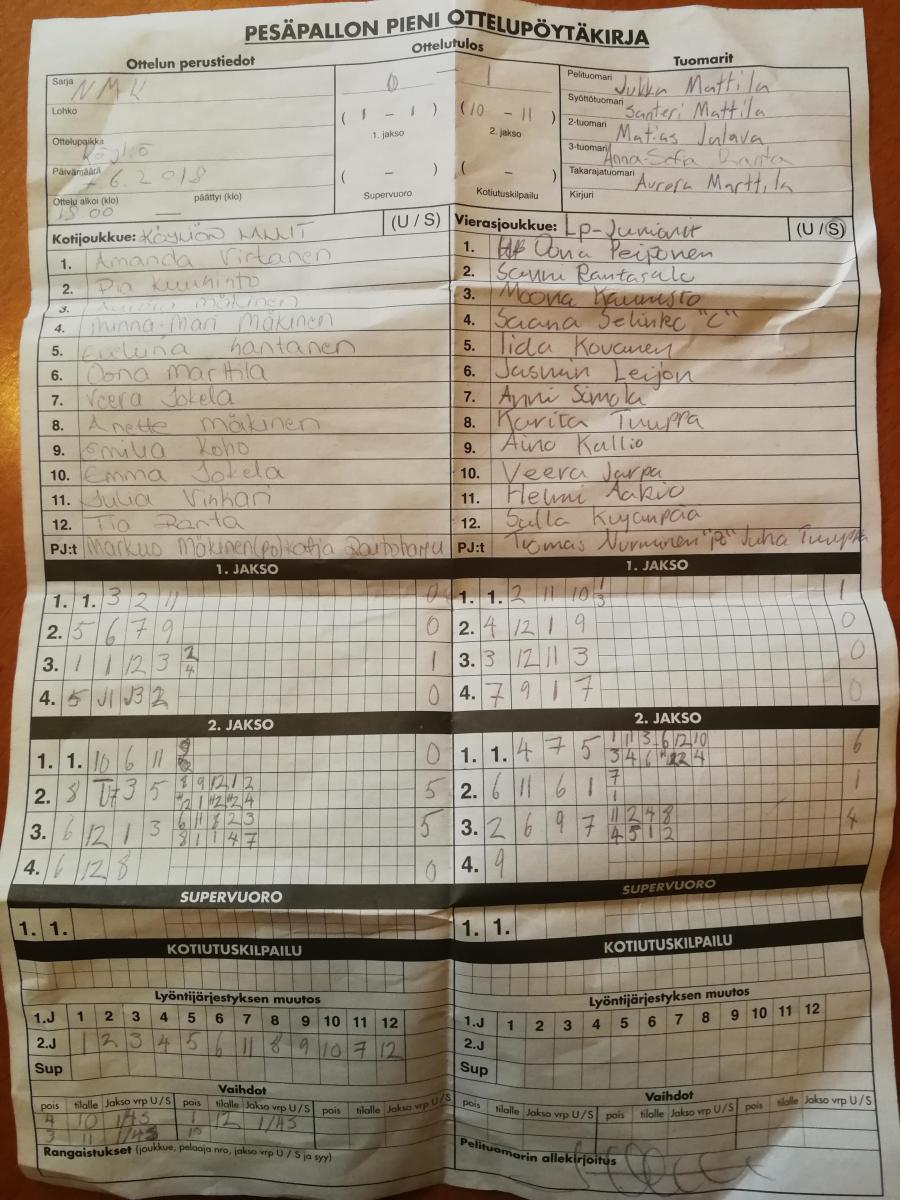 PESÄPALLON PIENI OTTELUPÖYTÄKIRJA
Ottelun perustiedot
Ottelutulos
Tuomarit
Sarja NMK
Lohko
Ottelupaikka
Päivämäärä 6.2018
Ottelu alkoi (klo) päättyi (klo)
18 00 —
0 — 1
( 1 - 1 )
1. jakso
( 10 - 11 )
2. jakso
( - )
Supervuoro
( - )
Kotiutuskilpailu
Pelituomari Jukka Mattila
Syöttötuomari Santeri Mattila
2-tuomari Matias Julava
3-tuomari Anna-Sofia
Takarajatuomari Aurora Marttila
Kirjuri
Kotijoukkue: (U / S)
1. Amanda Virtanen
2. Pia Kuuhinto
3. Mäkinen
4. Minna-Mari Mäkinen
5. Eveliina Lantanen
6. Oona Marttila
7. Veera Jokela
8. Anette Mäkinen
9. Emilia Koho
10. Emma Jokela
11. Julia Vinhari
12. Tia Ranta
PJ:t Markus Mäkinen(po) Katja Rautoharju
Vierasjoukkue: Lp-Juniorit (U / S)
1. Oona Peiponen
2. Sanni Rantasalo
3. Moona Kaunisto
4. Saana Selinko "C"
5. Iida Kovanen
6. Jasmin Leijon
7. Anni Simola
8. Karita Tuuppa
9. Aino Kallio
10. Veera Jarpa
11. Helmi Aakio
12. Salla Kujanpää
PJ:t Tuomas Nurminen "Po" Juha Tuuppa
1. JAKSO
1. 1. 3 2 11 0
2. 5 6 7 9 0
3. 1 11 12 3 2 4 1
4. 5 11 3 2 0
1. JAKSO
1. 1. 2 11 10 1 3 1
2. 4 12 1 9 0
3. 3 12 11 3 0
4. 7 9 1 7 0
2. JAKSO
1. 1. 10 6 11 0
2. 8 3 5 8 9 12 1 2 5
3. 6 12 1 3 6 11 8 2 3 5
8 1 1 4 7
4. 6 12 8 0
2. JAKSO
1. 1. 4 7 5 1 11 3 6 12 10 6
3 4 6 4
2. 6 11 6 1 7 1 1
3. 2 6 9 7 11 2 4 8 4
4 5 1 2
4. 9
SUPERVUORO
1. 1.
SUPERVUORO
1. 1.
KOTIUTUSKILPAILU
KOTIUTUSKILPAILU
Lyöntijärjestyksen muutos
1.J 1 2 3 4 5 6 7 8 9 10 11 12
2.J 1 2 3 4 5 6 11 8 9 10 7 12
Sup
Lyöntijärjestyksen muutos
1.J 1 2 3 4 5 6 7 8 9 10 11 12
2.J
Sup
Vaihdot
pois tilalle Jakso vrp U / S pois tilalle Jakso vrp U / S pois tilalle Jakso vrp U / S
4 10 1/4S 1 12 1/4S
3 11 1/4S 10
Vaihdot
pois tilalle Jakso vrp U / S pois tilalle Jakso vrp U / S pois tilalle Jakso vrp U / S
Rangaistukset (joukkue, pelaaja nro, jakso vrp U / S ja syy)
Pelituomarin allekirjoitus